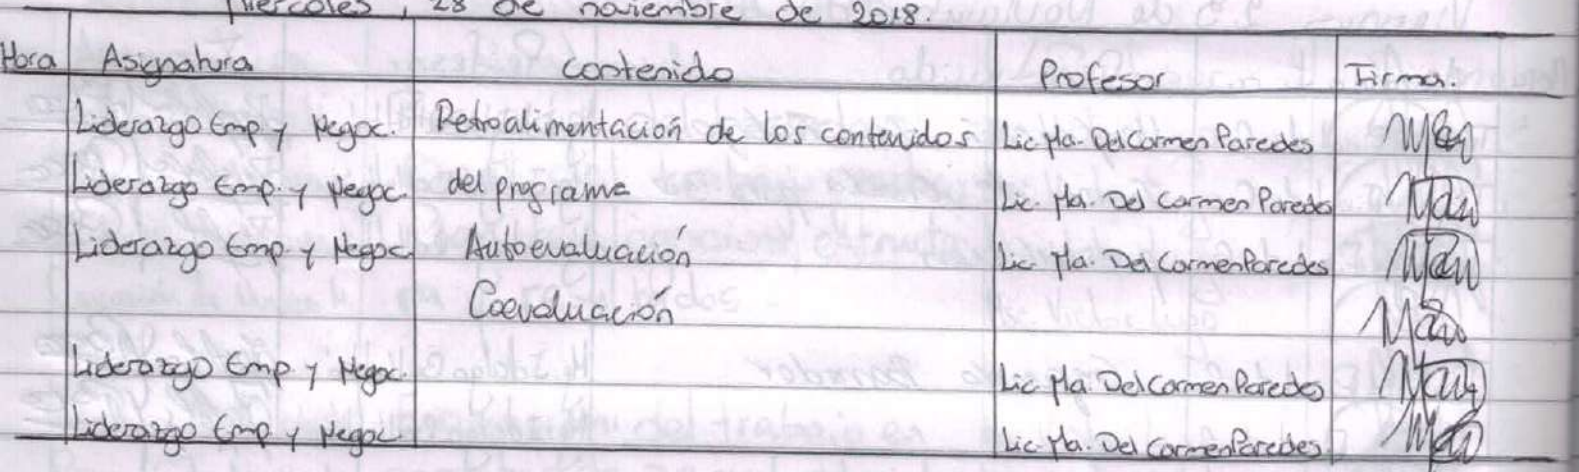 Miércoles, 28 de noviembre de 2018.
Hora Asignatura contenido Profesor Firma.
Liderazgo Emp y Negoc. Retroalimentación de los contenidos Lic. Ma. Del Carmen Paredes
Liderazgo Emp. y Negoc. del programa Lic. Ma. Del Carmen Paredes
Liderazgo Emp. y Negoc. Autoevaluación Lic. Ma. Del Carmen Paredes
Coevaluación
Liderazgo Emp. y Negoc. Lic. Ma. Del Carmen Paredes
Liderazgo Emp y Negoc. Lic. Ma. Del Carmen Paredes